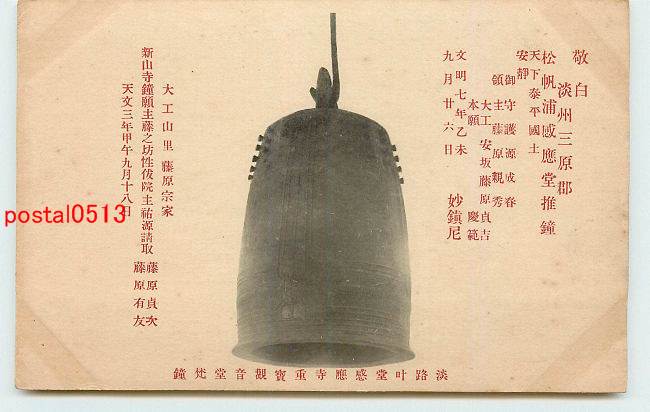 敬白
淡州三原郡
松帆浦感應堂推鐘
天下泰平國土
安靜
御守護源成春
領主藤原親秀
大工安坂藤原貞吉
本願 慶範
文明七年乙未
九月廿六日 妙鎮尼
大工山里 藤原宗家
新山寺鐘願主藤之坊性俊院主祐源請取
天文三年甲午九月十八日
藤原貞次
藤原有友
淡路叶堂感應寺重寳觀音堂梵鐘
postal0513